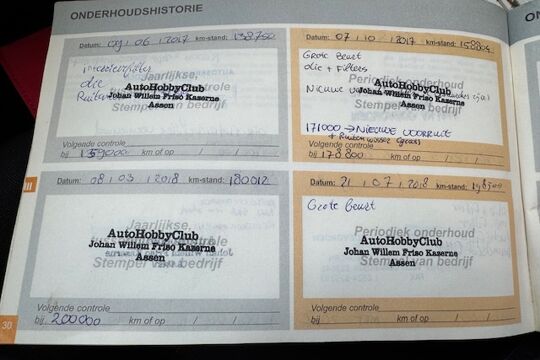 ONDERHOUDSHISTORIE
ON
Datum: 09 / 06 / 2017 km-stand: 138750
olie
Ruiten
Jaarlijkse
AutoHobbyClub
Johan Willem Friso Kaserne
Assen
Stempel van bedrijf
Volgende controle
bij 159000 km of op / /
Datum: 07 / 10 / 2017 km-stand: 158804
Grote Beurt
olie + Filters
Nieuwe
Periodiek onderhoud
AutoHobbyClub
Johan Willem Friso Kaserne
Assen
Stempel van bedrijf
171000 → Nieuwe voorruit
+ Ruiten wisser
Volgende controle
bij 178800 km of op / /
Datum: 08 / 03 / 2018 km-stand: 180012
Jaarlijkse
controle
AutoHobbyClub
Johan Willem Friso Kaserne
Assen
Stempel van bedrijf
Volgende controle
bij 200000 km of op / /
Datum: 21 / 07 / 2018 km-stand:
Grote Beurt
Periodiek onderhoud
AutoHobbyClub
Johan Willem Friso Kaserne
Assen
Stempel van bedrijf
Volgende controle
bij km of op / /
30